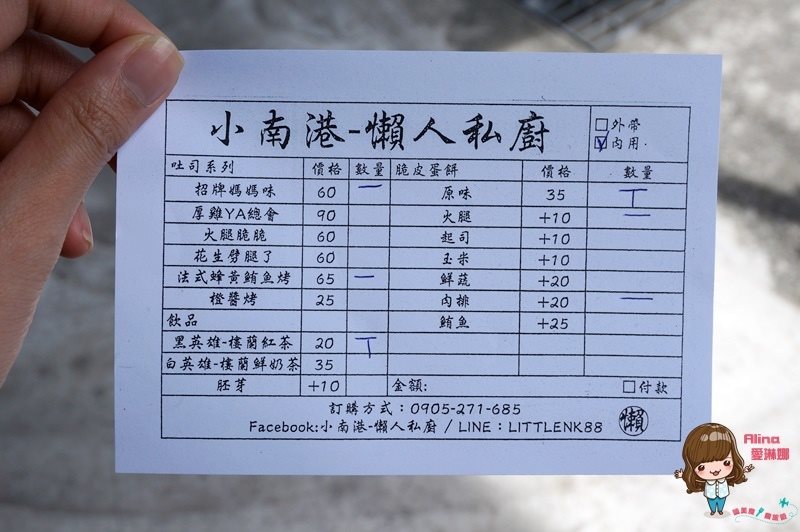 小南港-懶人私廚 □外帶
☑內用.
吐司系列 價格 數量 脆皮蛋餅 價格 數量
招牌媽媽味 60 一 原味 35 丅
厚雞YA總會 90 火腿 +10 一
火腿脆脆 60 起司 +10
花生劈腿了 60 玉米 +10
法式蜂黃鮪魚烤 65 一 鮮蔬 +20
橙醬烤 25 肉排 +20 一
飲品 鮪魚 +25
黑英雄-樓蘭紅茶 20 丅
白英雄-樓蘭鮮奶茶 35
胚芽 +10 金額: □付款
訂購方式：0905-271-685
Facebook:小南港-懶人私廚 / LINE：LITTLENK88 懶
Alina
愛琳娜